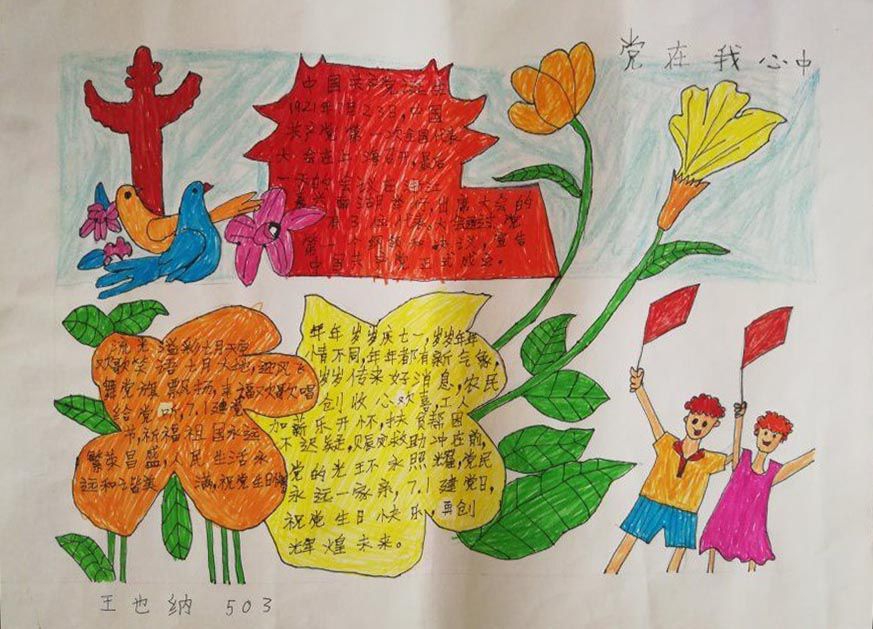 党在我心中
中国共产党诞生
1921年7月23日,中国
共产党第一次全国代表
大会在上海召开,最后
一天的会议在浙江
嘉兴南湖举行,出席大会的
有 3位代表,大会通过党
第一个纲领和决议,宣告
中国共产党正式成立。
流光溢彩七月天空
欢歌笑语七月大地,迎风飞
舞党旗飘扬,幸福欢歌唱
给党听,7.1建党
节,祈福祖国永远
繁荣昌盛,人民生活永
远和谐美满,祝党生日
年年岁岁庆七一,岁岁年年
情不同,年年都有新气象,
岁岁传来好消息,农民
创收心欢喜,工人
加薪乐开怀,扶贫帮困
不迟疑,赈灾救助冲在前,
党的光环永照耀,党民
永远一家亲,7.1建党日,
祝党生日快乐,再创
辉煌未来。
王也纳 503